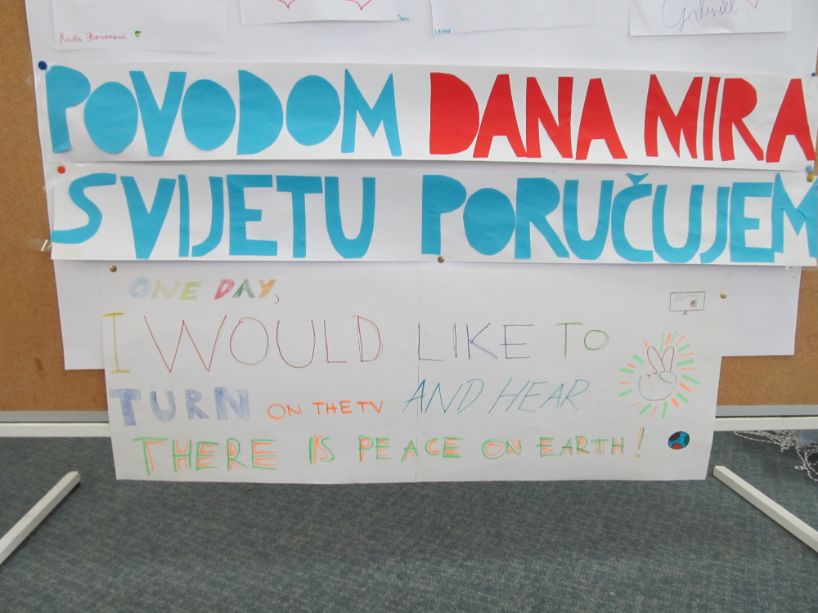 POVODOM DANA MIRA
SVIJETU PORUČUJEM
ONE DAY,
I WOULD LIKE TO
TURN ON THE TV AND HEAR
THERE IS PEACE ON EARTH!